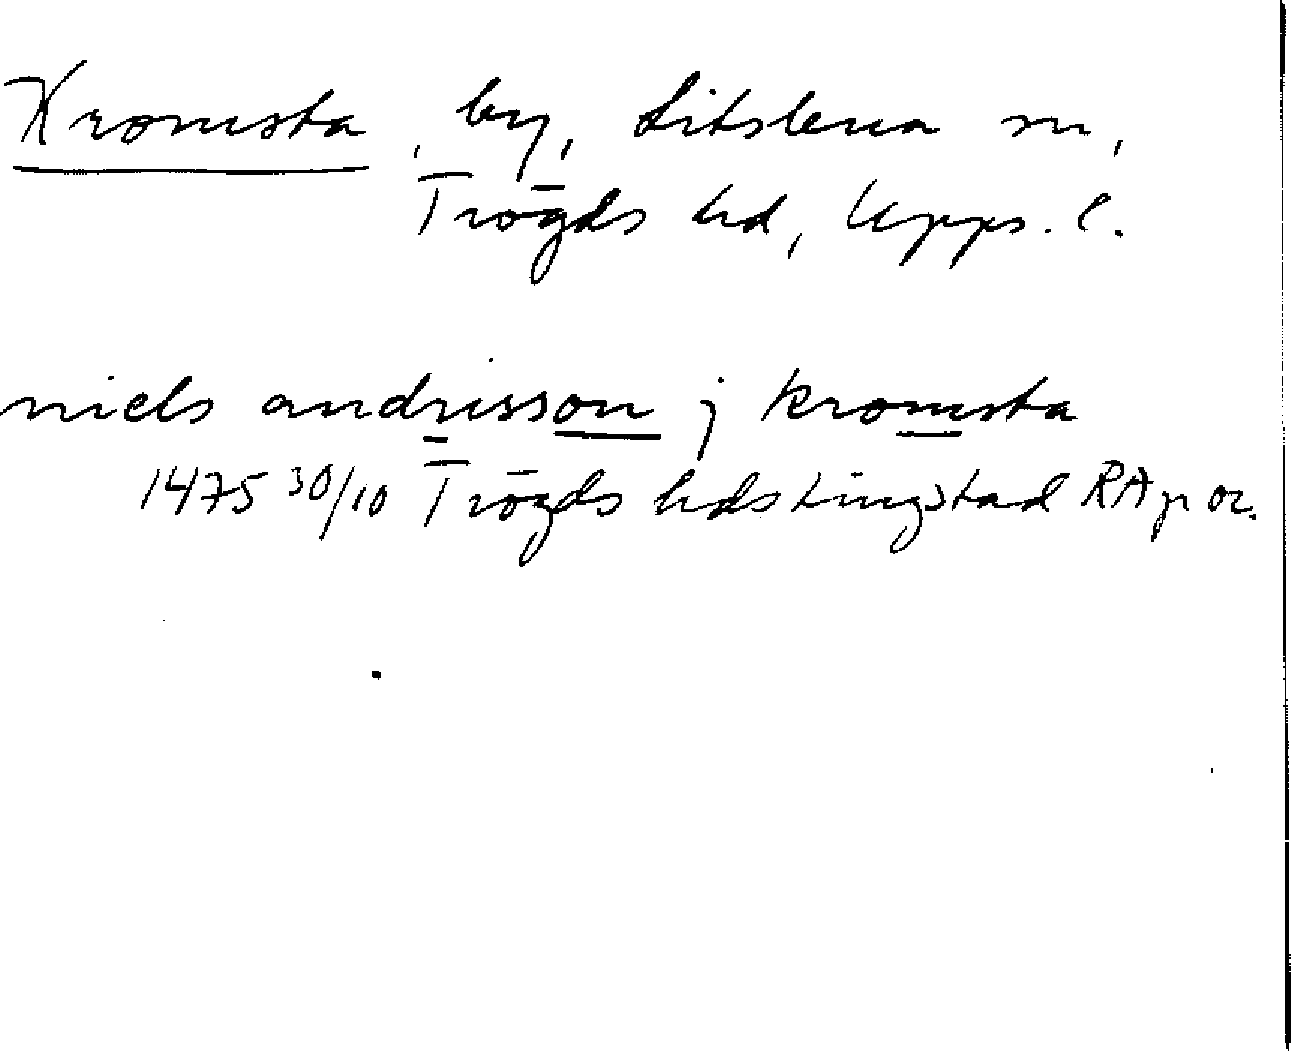 Kromsta, by, Litslena sn,
Trögds hd, Upps. l.
niels andrisson j kromsta
1475 30/10 Trögds hds tingstad RAp or.